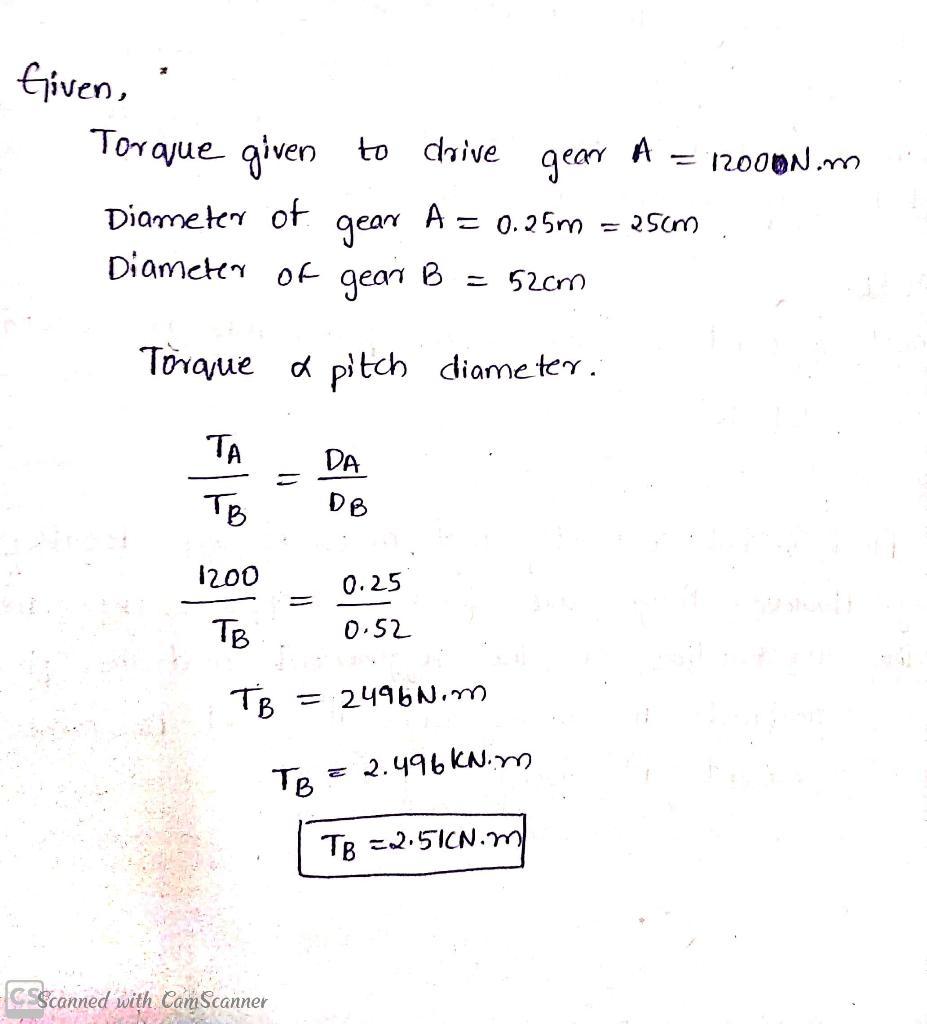 Given,
Torque given to drive gear A = 1200N.m
Diameter of gear A = 0.25m = 25cm
Diameter of gear B = 52cm
Torque α pitch diameter.
TA / TB = DA / DB
1200 / TB = 0.25 / 0.52
TB = 2496N.m
TB = 2.496KN.m
TB = 2.5KN.m
CS Scanned with CamScanner